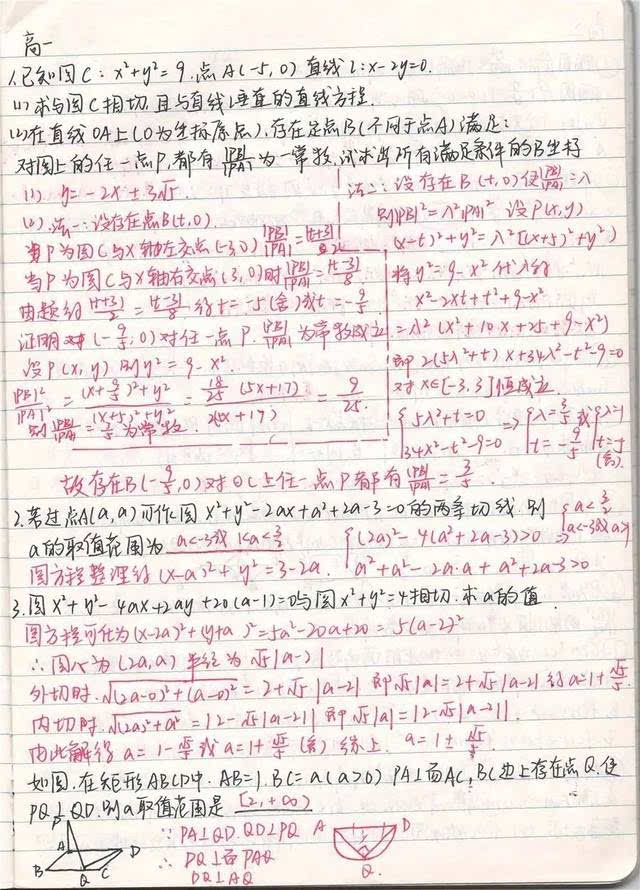 高一
1.已知圆C:x²+y²=9.点A(-5,0)直线l:x-2y=0.
(1)求与圆C相切.且与直线l垂直的直线方程.
(2)在直线OA上(O为坐标原点),存在定点B(不同于点A)满足:
对圆上的任一点P,都有|PB|/|PA|为一常数,试求出所有满足条件的B坐标
(1). y=-2x±3√5.
(2).法一:设存在点B(t,0)
当P为圆C与X轴左交点(-3,0) |PB|/|PA|=|t+3|/2
当P为圆C与X轴右交点(3,0)时|PB|/|PA|=|t-3|/8.
由题得|t+3|/2=|t-3|/8得t=-5(舍)或t=-9/5
证明 (-9/5,0)对任一点P.|PB|/|PA|为常数成立
设P(x,y)则y²=9-x².
|PB|²/|PA|²=((x+9/5)²+y²)/((x+5)²+y²)=18/25(5x+17)/2(5x+17)=9/25.
则|PB|/|PA|=3/5为常数
法二:设存在B(t,0)使|PB|/|PA|=λ
则|PB|²=λ²|PA|² 设P(x,y)
(x-t)²+y²=λ²[(x+5)²+y²)
将y²=9-x²代入得
x²-2xt+t²+9-x²
=λ²(x²+10x+25+9-x²)
即2(5λ²+t)x+34λ²-t²-9=0
对x∈[-3,3]恒成立
{5λ²+t=0 34λ²-t²-9=0 ⇒{λ=3/5 t=-9/5 或{λ=1 t=-5(舍).
故存在B(-9/5,0)对⊙C上任一点P都有|PB|/|PA|=3/5.
2.若过点A(a,a)可作圆x²+y²-2ax+a²+2a-3=0的两条切线.则
a的取值范围为 a<-3或1<a<3/2 {(2a)²-4(a²+2a-3)>0 a²+a²-2a·a+a²+2a-3>0 ⇒{a<3/2 a<-3或a>1
圆方程整理得(x-a)²+y²=3-2a.
3.圆x²+y²-4ax+2ay+20(a-1)=0与圆x²+y²=4相切.求a的值.
圆方程可化为(x-2a)²+(y+a)²=5a²-20a+20=5(a-2)²
∴圆心为(2a,a) 半径为√5|a-2|
外切时.√(2a-0)²+(a-0)²=2+√5|a-2| 即√5|a|=2+√5|a-2| 得a=1+√5/5
内切时.√(2a)²+a²=|2-√5|a-2|| 即√5|a|=|2-√5|a-2||.
由此解得a=1-√5/5或a=1+√5/5(舍) 综上.a=1±√5/5.
如图.在矩形ABCD中.AB=1.BC=a(a>0) PA⊥面AC,BC边上存在点Q.使
PQ⊥QD.则a取值范围是 [2,+∞)
P
A
B
Q
C
D
∵PA⊥QD.QD⊥PQ
∴DQ⊥面PAQ
DQ⊥AQ
A
D
Q.